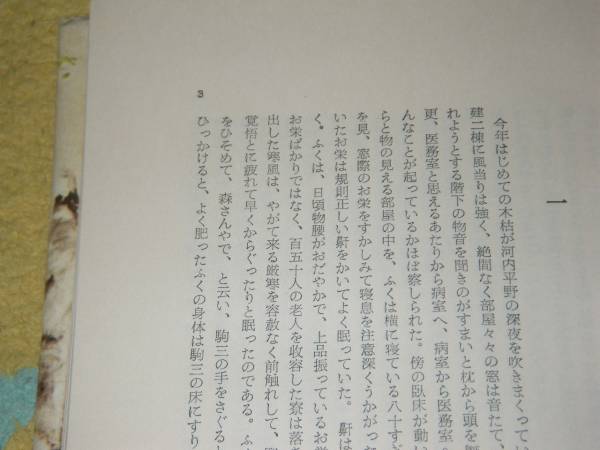 一
今年はじめての木枯が河内平野の深夜を吹きまくってい
建二棟に風当りは強く、絶間なく部屋々々の窓は音たて、
れようとする階下の物音を聞きのがすまいと枕から頭を
更、医務室と思えるあたりから病室へ、病室から医務室
んなことが起っているかほぼ察しられた。傍の臥床が動い
らと物の見える部屋の中を、ふくは横に寝ている八十すぎ
を見、窓際のお栄をすかしみて寝息を注意深くうかがった
いたお栄は規則正しい鼾をかいてよく眠っていた。鼾は
く。ふくは、日頃物腰がおだやかで、上品振っているお栄
お栄ばかりではなく、百五十人の老人を収容した寮は落
出した寒風は、やがて来る厳寒を容赦なく前触れして、
覚悟とに疲れて早くからぐったりと眠ったのである。ふ
をひそめて、森さんやで、と云い、駒三の手をさぐると
ひっかけると、よく肥ったふくの身体は駒三の床にすり
3